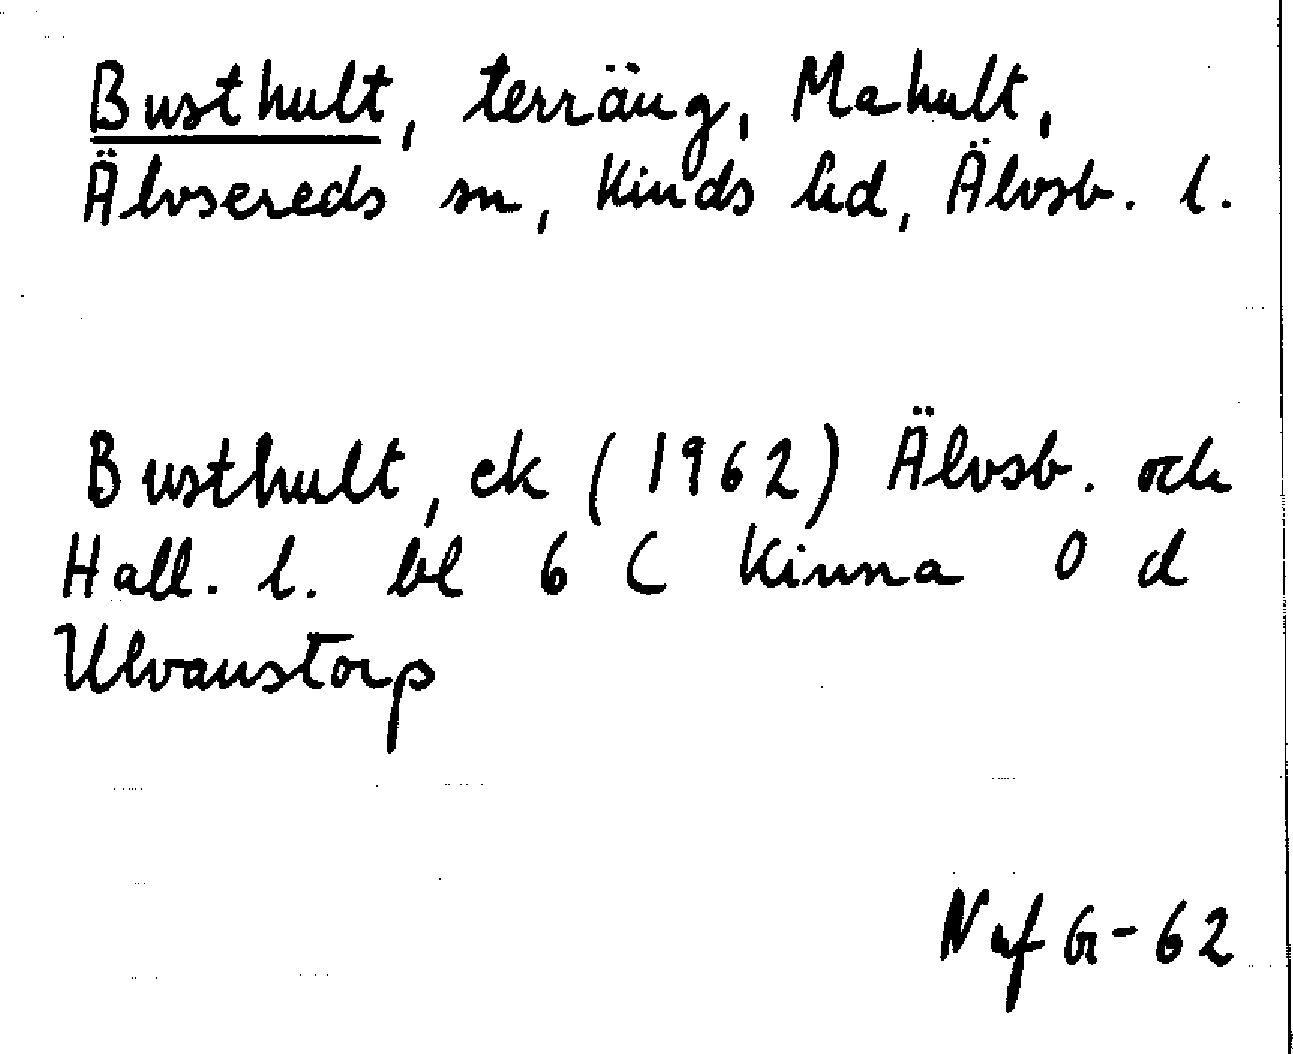 Busthult, terräng, Mahult,
Älvsereds sn, Kinds hd, Älvsb. l.
Busthult, ek (1962) Älvsb. och
Hall. l. bl 6 C Kinna 0 d
Ulvanstorp
Naf G-62